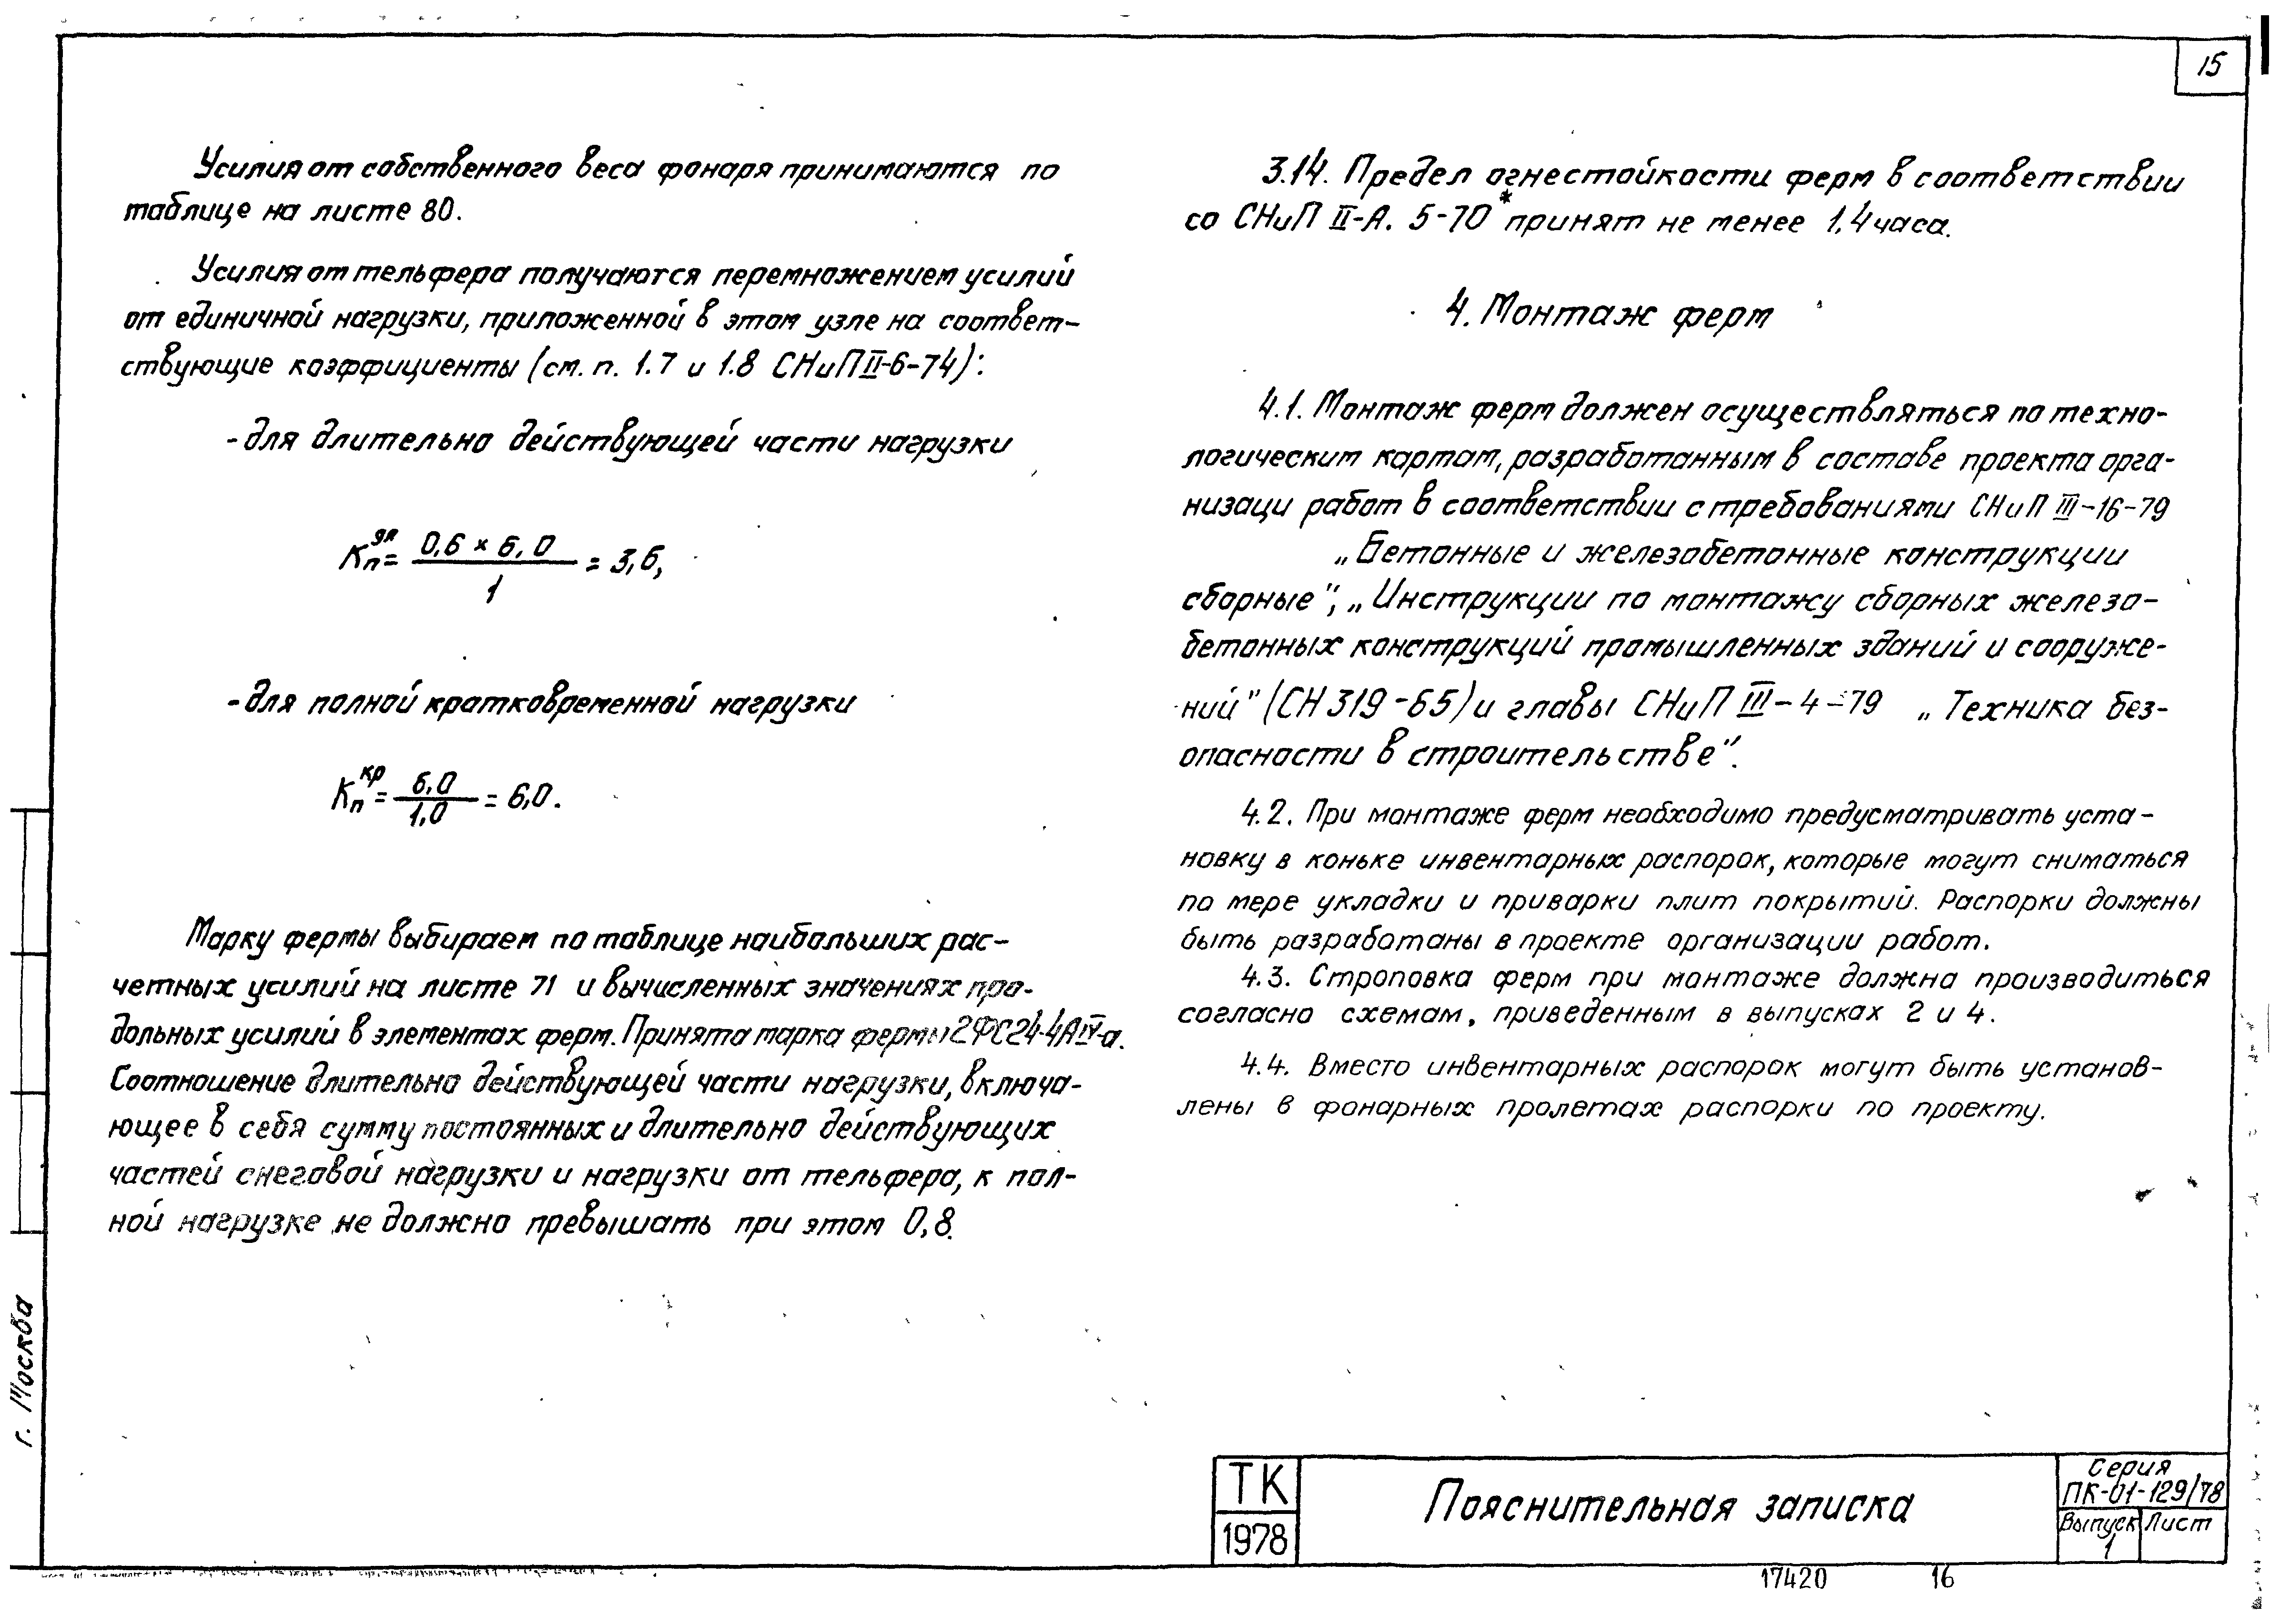 15
Усилия от собственного веса фонаря принимаются по
таблице на листе 80.
Усилия от тельфера получаются перемножением усилий
от единичной нагрузки, приложенной в этом узле на соответ-
ствующие коэффициенты (см. п. 1.7 и 1.8 СНиП II-6-74):
- для длительно действующей части нагрузки
Kп^дл = 0,6 × 6,0 / 1 = 3,6,
- для полной кратковременной нагрузки
Kп^кр = 6,0 / 1,0 = 6,0.
Марку фермы выбираем по таблице наибольших рас-
четных усилий на листе 71 и вычисленных значениях про-
дольных усилий в элементах ферм. Принята марка фермы 2ФС24-4АIV-а.
Соотношение длительно действующей части нагрузки, включа-
ющее в себя сумму постоянных и длительно действующих
частей снеговой нагрузки и нагрузки от тельфера, к пол-
ной нагрузке не должно превышать при этом 0,8.
3.14. Предел огнестойкости ферм в соответствии
со СНиП II-А. 5-70* принят не менее 1,4 часа.
4. Монтаж ферм
4.1. Монтаж ферм должен осуществляться по техно-
логическим картам, разработанным в составе проекта орга-
низаци работ в соответствии с требованиями СНиП III-16-79
„Бетонные и железобетонные конструкции
сборные", „Инструкции по монтажу сборных железо-
бетонных конструкций промышленных зданий и сооруже-
ний" (СН 319-65) и главы СНиП III-4-79 „Техника без-
опасности в строительстве".
4.2. При монтаже ферм необходимо предусматривать уста-
новку в коньке инвентарных распорок, которые могут сниматься
по мере укладки и приварки плит покрытий. Распорки должны
быть разработаны в проекте организации работ.
4.3. Строповка ферм при монтаже должна производиться
согласно схемам, приведенным в выпусках 2 и 4.
4.4. Вместо инвентарных распорок могут быть установ-
лены в фонарных пролетах распорки по проекту.
г. Москва
ТК
1978
Пояснительная записка
Серия
ПК-01-129/78
Выпуск Лист
1
17420 16